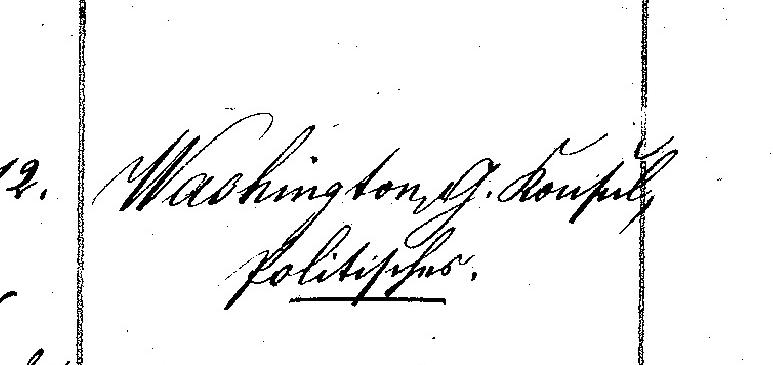 12. Washington, G. Konsul,
Politisches.